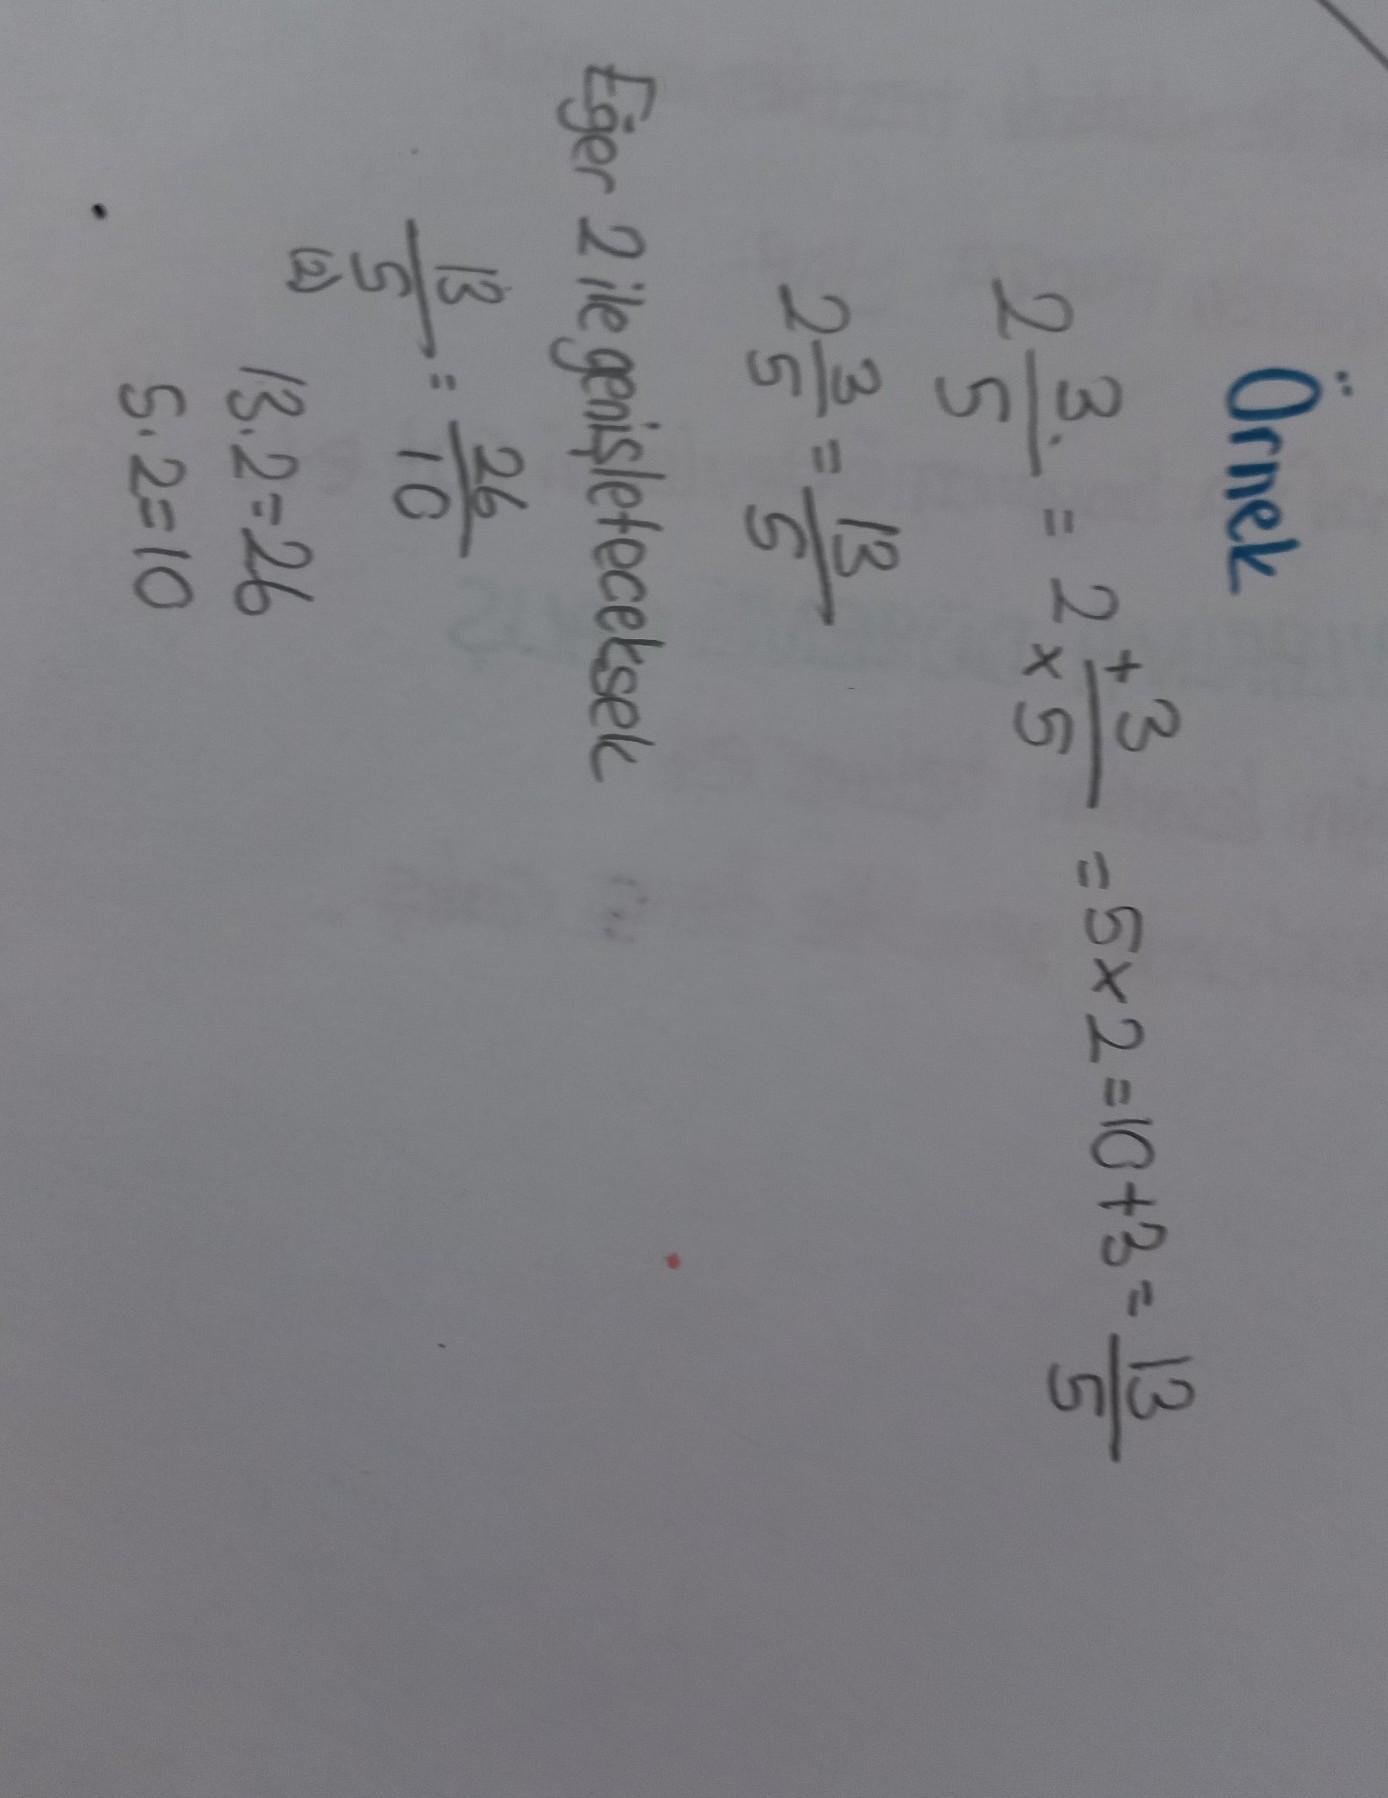 Örnek
2 3/5 = 2 + 3 / x 5 = 5x2=10+3= 13/5
2 3/5 = 13/5
Eğer 2 ile genişleteceksek
13/5 = 26/10
(2)
13.2=26
5.2=10